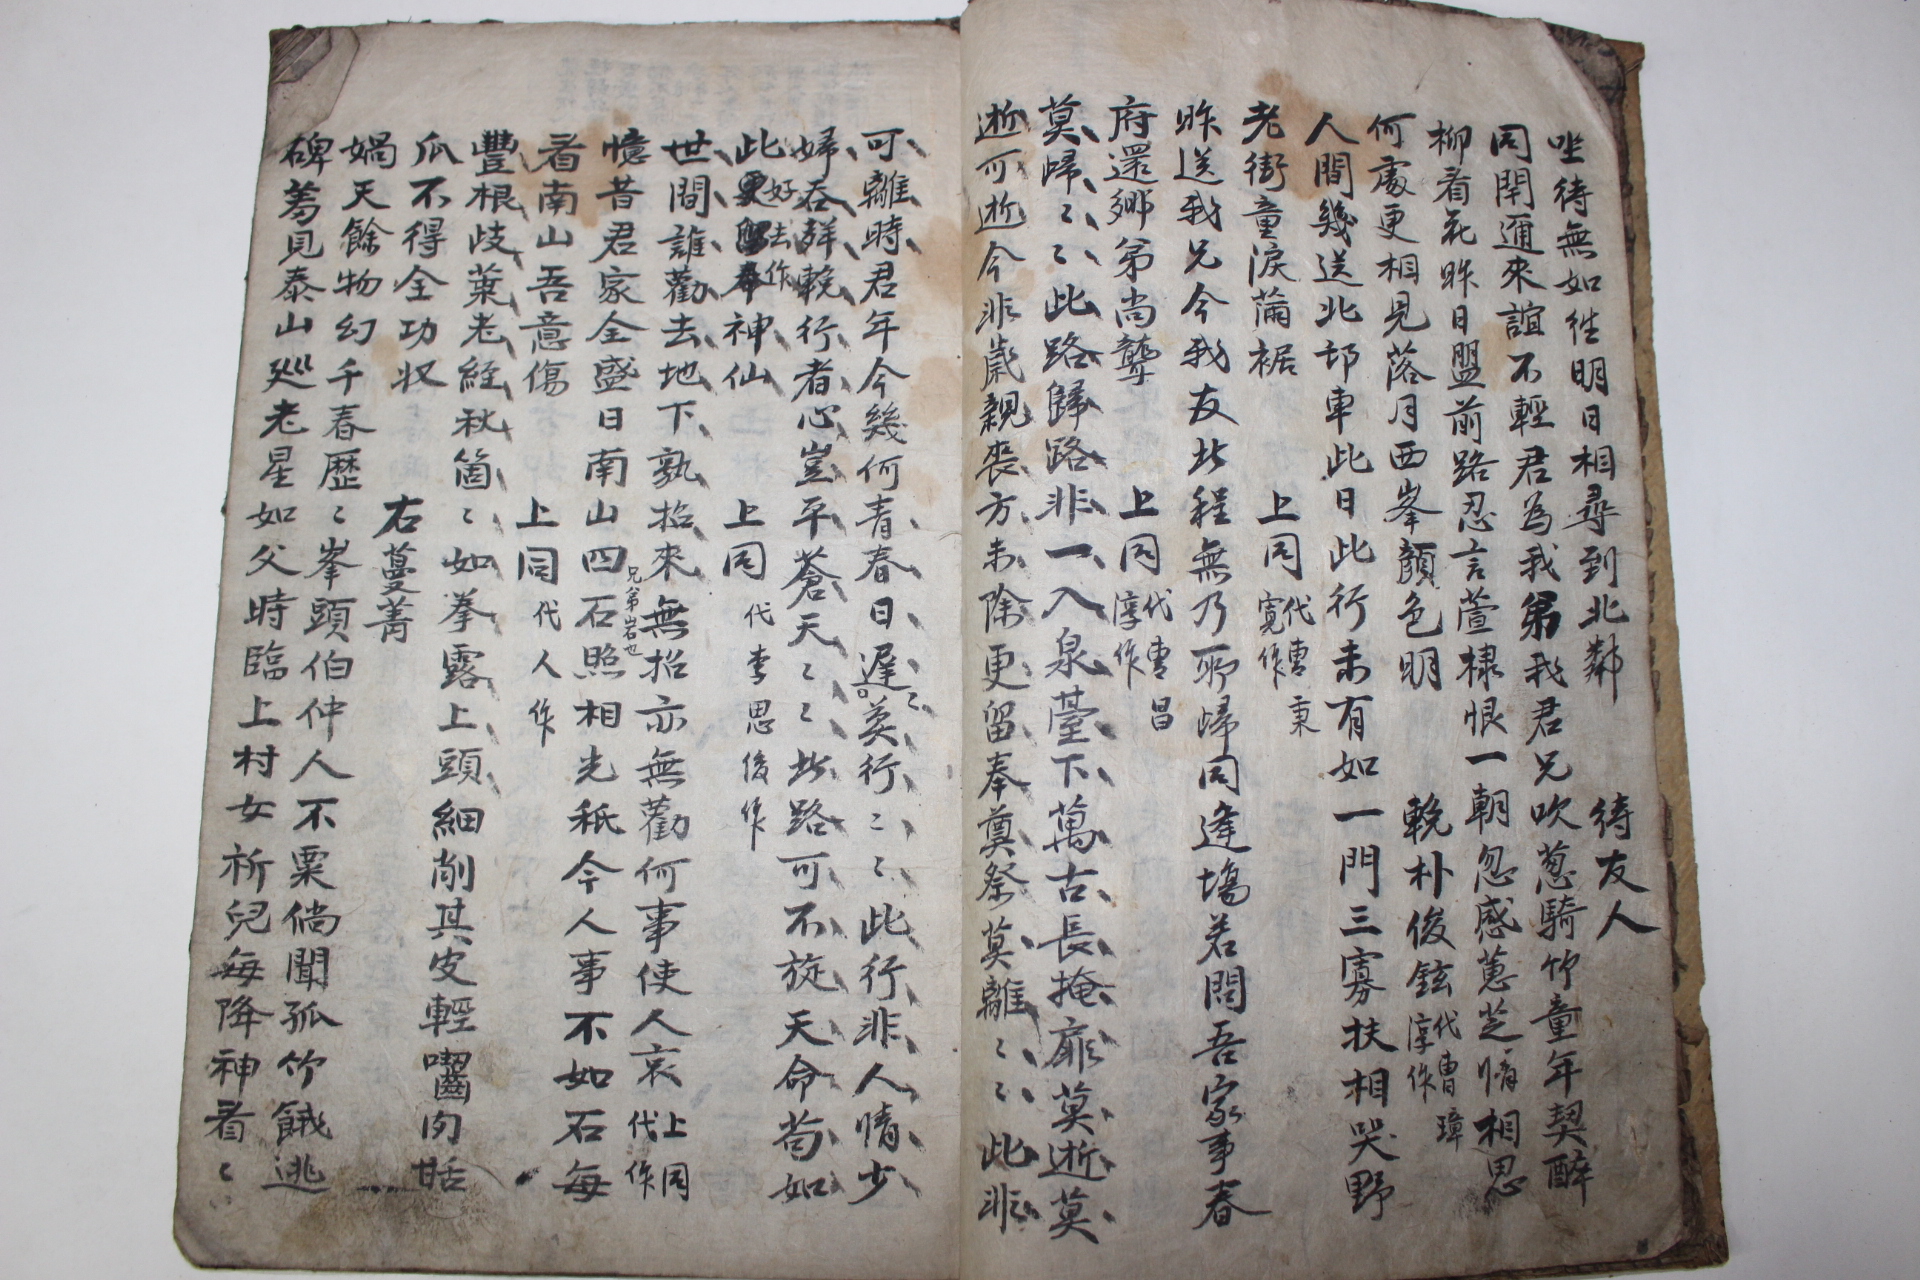 坐待無如徃明日相尋到北鄰 待友人
同閈邇來誼不輕君為我弟我君兄吹葱騎竹童年契醉
柳看花昨日盟前路忍言萱棣恨一朝忽感蕙芝情相思
何處更相見落月西峯顔色明 輓朴俊鉉 代曺璋淳作
人間幾送北邙車此日此行未有如一門三寡扶相哭野
老街童淚滿裾 上同 代曺秉寛作
昨送我兄今我友此程無乃所歸同逢塲若問吾家事春
府還鄉第尚聾 上同 代曺昌淳作
莫歸〻〻此路歸路非一入泉臺下萬古長掩扉莫逝莫
逝可逝今非歲親喪方未除更留奉奠祭莫離〻〻此非
可離時君年今幾何青春日遲〻莫行〻〻此行非人情少
婦吞聲輓行者心豈平蒼天〻〻此路可不旋天命苟如
此好去作神仙 上同 代李思俊作
世間誰勸去地下孰招來無招亦無勸何事使人哀 上同代作
憶昔君家全盛日南山四兄弟岩也石照相光秖今人事不如石每
看南山吾意傷 上同 代人作
豐根歧葉老經秋箇〻如拳露上頭細削其皮輕嚙肉甛
瓜不得全功收 右蔓菁
媧天餘物幻千春歷〻峯頭伯仲人不粟倘聞孤竹餓逃
碑羞見泰山廵老星如父時臨上村女祈兒每降神看〻